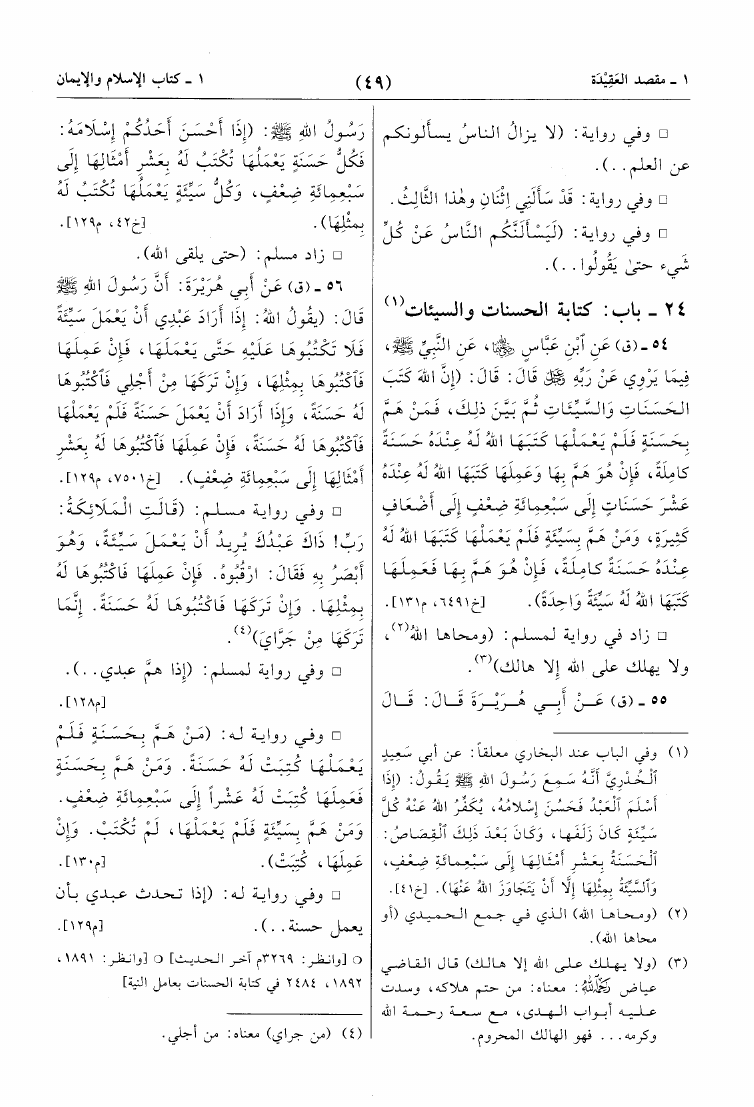 ١ ـ مقصد العَقِيْدَة
(٤٩)
١ ـ كتاب الإسلام والإيمان
□ وفي رواية: (لا يزالُ الناسُ يسألونكم
عن العلم..).
□ وفي رواية: قَدْ سَأَلَنِي اثْنَانِ وهٰذا الثَّالِثُ.
□ وفي رواية: (لَيَسْأَلَنَّكُم النَّاسُ عَنْ كُلِّ
شَيء حتىٰ يَقُولُوا..).
٢٤ ـ باب: كتابة الحسنات والسيئات(١)
٥٤ ـ (ق) عَنِ ٱبْنِ عَبَّاسٍ ﷠، عَنِ النَّبِيِّ ﷺ،
فِيمَا يَرْوِي عَنْ رَبِّهِ ﷻ قَالَ: قَالَ: (إِنَّ اللهَ كَتَبَ
الحَسَنَاتِ وَالسَّيِّئَاتِ ثُمَّ بَيَّنَ ذلِكَ، فَمَنْ هَمَّ
بِحَسَنَةٍ فَلَمْ يَعْمَلْهَا كَتَبَهَا اللهُ لَهُ عِنْدَهُ حَسَنَةً
كامِلَةً، فَإِنْ هُوَ هَمَّ بِهَا وَعَمِلَهَا كَتَبَهَا اللهُ لَهُ عِنْدَهُ
عَشْرَ حَسَنَاتٍ إِلَى سَبْعِمِائَةِ ضِعْفٍ إِلَى أَضْعَافٍ
كَثِيرَةٍ، وَمَنْ هَمَّ بِسَيِّئَةٍ فَلَمْ يَعْمَلْهَا كَتَبَهَا اللهُ لَهُ
عِنْدَهُ حَسَنَةً كامِلَةً، فَإِنْ هُوَ هَمَّ بِهَا فَعَمِلَهَا
كَتَبَهَا اللهُ لَهُ سَيِّئَةً وَاحِدَةً). [خ٦٤٩١، م١٣١].
□ زاد في رواية لمسلم: (ومحاها اللهُ(٢)،
ولا يهلك على الله إلا هالك)(٣).
٥٥ ـ (ق) عَنْ أَبِي هُرَيْرَةَ قَالَ: قَالَ
(١) وفي الباب عند البخاري معلقاً: عن أبي سَعِيدٍ
ٱلخُدْرِيِّ أَنَّهُ سَمِعَ رَسُولَ اللهِ ﷺ يَقُولُ: (إِذَا
أَسْلَمَ ٱلْعَبْدُ فَحَسُنَ إِسْلَامُهُ، يُكَفِّرُ اللهُ عَنْهُ كُلَّ
سَيِّئَةٍ كَانَ زَلَفَها، وَكَانَ بَعْدَ ذٰلِكَ ٱلْقِصَاصُ:
ٱلْحَسَنَةُ بِعَشْرِ أَمْثَالِهَا إِلَى سَبْعِمِائَةِ ضِعْفٍ،
وَٱلسَّيِّئَةُ بِمِثْلِهَا إِلَّا أَنْ يَتَجَاوَزَ اللهُ عَنْهَا). [خ٤١].
(٢) (ومحاها الله) الذي في جمع الحميدي (أو
محاها الله).
(٣) (ولا يهلك على الله إلا هالك) قال القاضي
عياض ﵀: معناه: من حتم هلاكه، وسدت
عليه أبواب الهدى، مع سعة رحمة الله
وكرمه... فهو الهالك المحروم.
رَسُولُ اللهِ ﷺ: (إِذَا أَحْسَنَ أَحَدُكُمْ إِسْلَامَهُ:
فَكُلُّ حَسَنَةٍ يَعْمَلُهَا تُكْتَبُ لَهُ بِعَشْرِ أَمْثَالِهَا إِلَى
سَبْعِمِائَةِ ضِعْفٍ، وَكُلُّ سَيِّئَةٍ يَعْمَلُهَا تُكْتَبُ لَهُ
بِمِثْلِهَا). [خ٤٢، م١٢٩].
□ زاد مسلم: (حتى يلقى الله).
٥٦ ـ (ق) عَنْ أَبِي هُرَيْرَةَ: أَنَّ رَسُولَ اللهِ ﷺ
قَالَ: (يقُولُ اللهُ: إِذَا أَرَادَ عَبْدِي أَنْ يَعْمَلَ سَيِّئَةً
فَلَا تَكْتُبُوهَا عَلَيْهِ حَتَّى يَعْمَلَهَا، فَإِنْ عَمِلَهَا
فَٱكْتُبُوهَا بِمِثْلِهَا، وَإِنْ تَرَكَهَا مِنْ أَجْلِي فَٱكْتُبُوهَا
لَهُ حَسَنَةً، وَإِذَا أَرَادَ أَنْ يَعْمَلَ حَسَنَةً فَلَمْ يَعْمَلْهَا
فَٱكْتُبُوهَا لَهُ حَسَنَةً، فَإِنْ عَمِلَهَا فَٱكْتُبُوهَا لَهُ بِعَشْرِ
أَمْثَالِهَا إِلَى سَبْعِمِائَةِ ضِعْفٍ). [خ٧٥٠١، م١٢٩].
□ وفي رواية مسلم: (قَالَتِ الْمَلَائِكَةُ:
رَبِّ! ذَاكَ عَبْدُكَ يُرِيدُ أَنْ يَعْمَلَ سَيِّئَةً، وَهُوَ
أَبْصَرُ بِهِ فَقَالَ: ارْقُبُوهُ. فَإِنْ عَمِلَهَا فَاكْتُبُوهَا لَهُ
بِمِثْلِهَا. وَإِنْ تَرَكَهَا فَاكْتُبُوهَا لَهُ حَسَنَةً. إِنَّمَا
تَرَكَهَا مِنْ جَرَّايَ)(٤).
□ وفي رواية لمسلم: (إذا همَّ عبدي..).
[م١٢٨].
□ وفي رواية له: (مَنْ هَمَّ بِحَسَنَةٍ فَلَمْ
يَعْمَلْهَا كُتِبَتْ لَهُ حَسَنَةً. وَمَنْ هَمَّ بِحَسَنَةٍ
فَعَمِلَهَا كُتِبَتْ لَهُ عَشْراً إِلَى سَبْعِمِائَةِ ضِعْفٍ.
وَمَنْ هَمَّ بِسَيِّئَةٍ فَلَمْ يَعْمَلْهَا، لَمْ تُكْتَبْ. وَإِنْ
عَمِلَهَا، كُتِبَتْ). [م١٣٠].
□ وفي رواية له: (إذا تحدث عبدي بأن
يعمل حسنة..). [م١٢٩].
○ [وانظر: ٣٢٦٩م آخر الحديث] ○ [وانظر: ١٨٩١،
١٨٩٢، ٢٤٨٤ في كتابة الحسنات بعامل النية]
(٤) (من جراي) معناه: من أجلي.